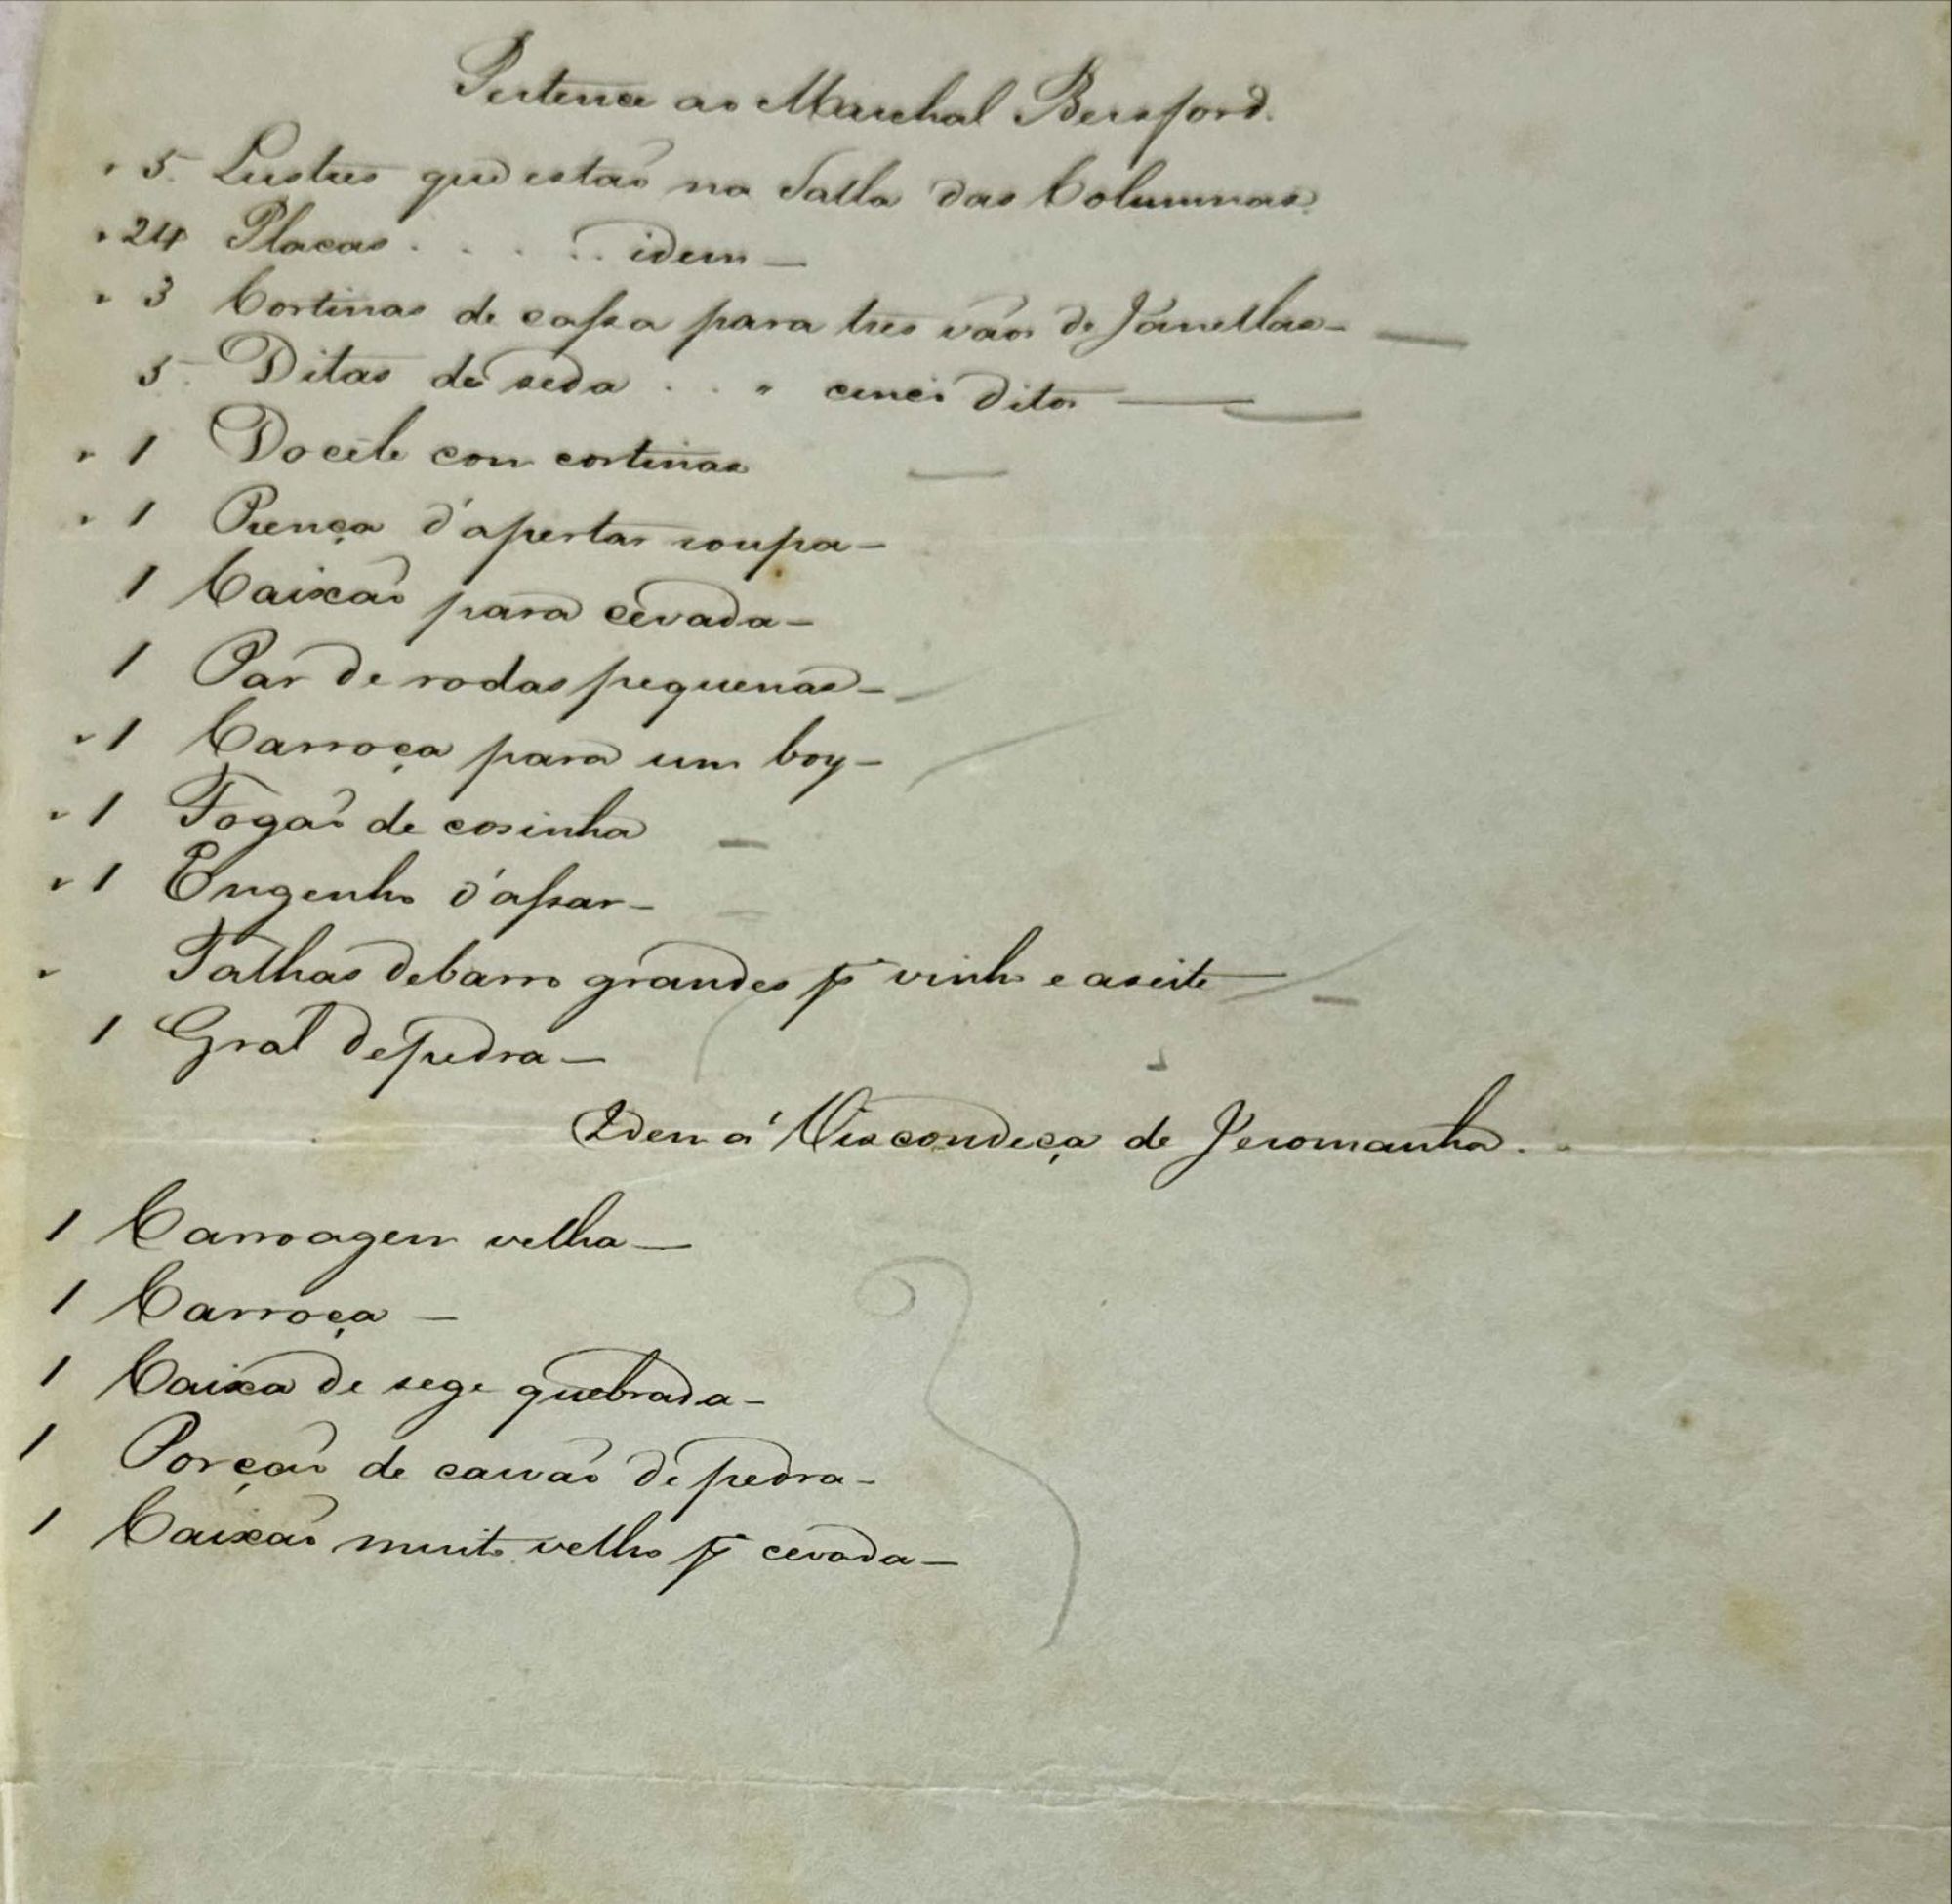 Pertence ao Marechal Beresford.
5. Lustres que estaõ na Salla das Columnas.
24 Placas . . . . . . idem —
3 Cortinas de cassa para tres vãos de Janellas —
5. Ditas de seda . . " cinco ditos —
1 Docéle com cortinas
1 Prença d'apertar roupa —
1 Caixaõ para cevada —
1 Par de rodas pequenas —
1 Carroça para um boy —
1 Fogaõ de cosinha
1 Engenho d'assar —
Talhas de barro grandes pª vinho e aseite
1 Gral de pedra —
Idem á Viscondeça de Jeromanha.
1 Carroagem velha —
1 Carroça —
1 Caixa de sege quebrada —
1 Porçaõ de carvaõ de pedra —
1 Caixaõ muito velho pª cevada —